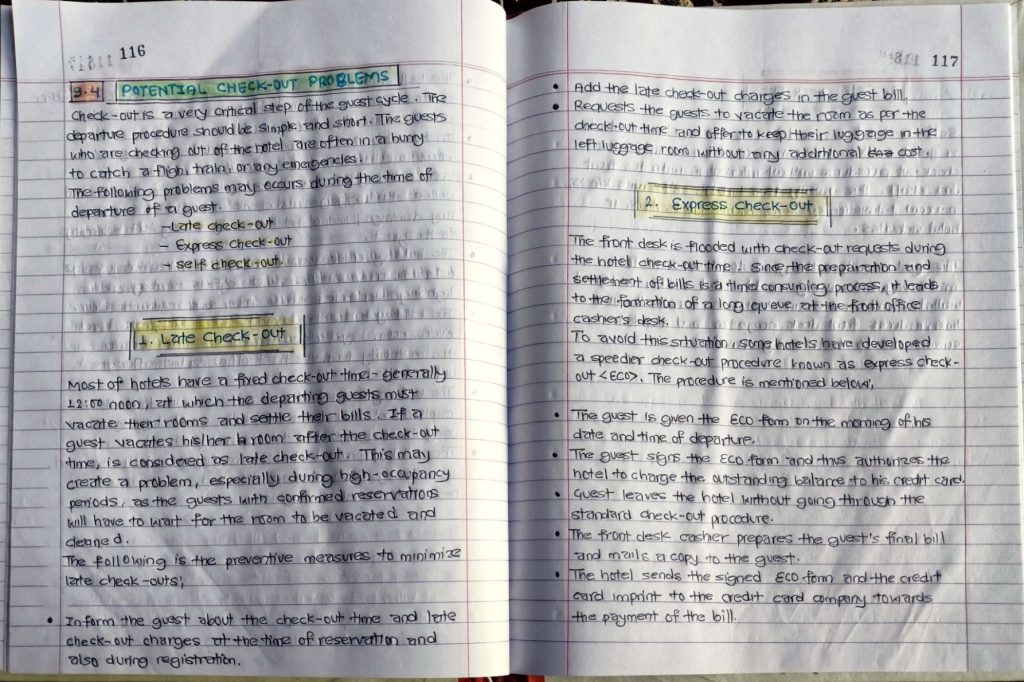 116
9.4 POTENTIAL CHECK-OUT PROBLEMS
Check-out is a very critical step of the guest cycle. The
departure procedure should be simple and short. The guests
who are checking out of the hotel are often in a hurry
to catch a fligh, train, or any emergencies.
The following problems may occurs during the time of
departure of a guest.
- Late check-out
- Express check-out
- Self check-out.
1. Late Check-out
Most of hotels have a fixed check-out time - generally
12:00 noon, at which the departing guests must
vacate their rooms and settle their bills. If a
guest vacates his/her room after the check-out
time, is considered as late check-out. This may
create a problem, especially during high-occupancy
periods, as the guests with confirmed reservations
will have to wait for the room to be vacated and
cleaned.
The following is the preventive measures to minimize
late check-outs;
• Inform the guest about the check-out time and late
check-out charges at the time of reservation and
also during registration.
117
• Add the late check-out charges in the guest bill.
• Requests the guests to vacate the room as per the
check-out time and offer to keep their luggage in the
left luggage room without any additional cost.
2. Express check-out
The front desk is flooded with check-out requests during
the hotel check-out time. Since the preparation and
settlement of bills is a time consuming process, it leads
to the formation of a long queue at the front office
casher's desk.
To avoid this situation, some hotels have developed
a speedier check-out procedure known as express check-
out <ECO>. The procedure is mentioned below;
• The guest is given the ECO form on the morning of his
date and time of departure.
• The guest signs the ECO form and thus authorizes the
hotel to charge the outstanding balance to his credit card.
• Guest leaves the hotel without going through the
standard check-out procedure.
• The front desk casher prepares the guest's final bill
and mails a copy to the guest.
• The hotel sends the signed ECO form and the credit
card imprint to the credit card company towards
the payment of the bill.